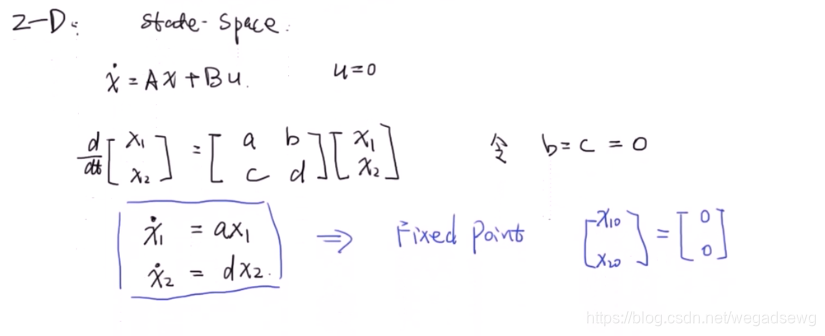 2-D: State-Space.
ẋ = Ax + Bu. u=0
d/dt [x₁ x₂] = [a b c d] [x₁ x₂] 令 b = c = 0
ẋ₁ = ax₁ ⇒ Fixed Point [x₁₀ x₂₀] = [0 0]
ẋ₂ = dx₂.
https://blog.csdn.net/wegadsewg